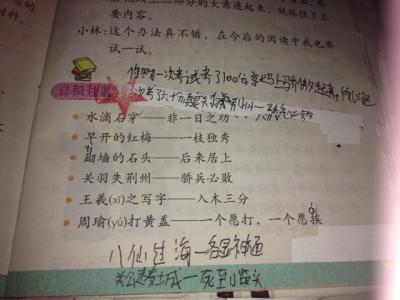 部分的大意连起来,就抓住了主
要内容。
小林:这个办法真不错,在今后的阅读中我也要
试一试。
考试考了100分
日积月累
水滴石穿——非一日之功
早开的红梅——一枝独秀
砌墙的石头——后来居上
关羽失荆州——骄兵必败
王羲(xī)之写字——入木三分
周瑜(yú)打黄盖——一个愿打,一个愿挨
八仙过海—各显神通
关公走麦城—死到临头